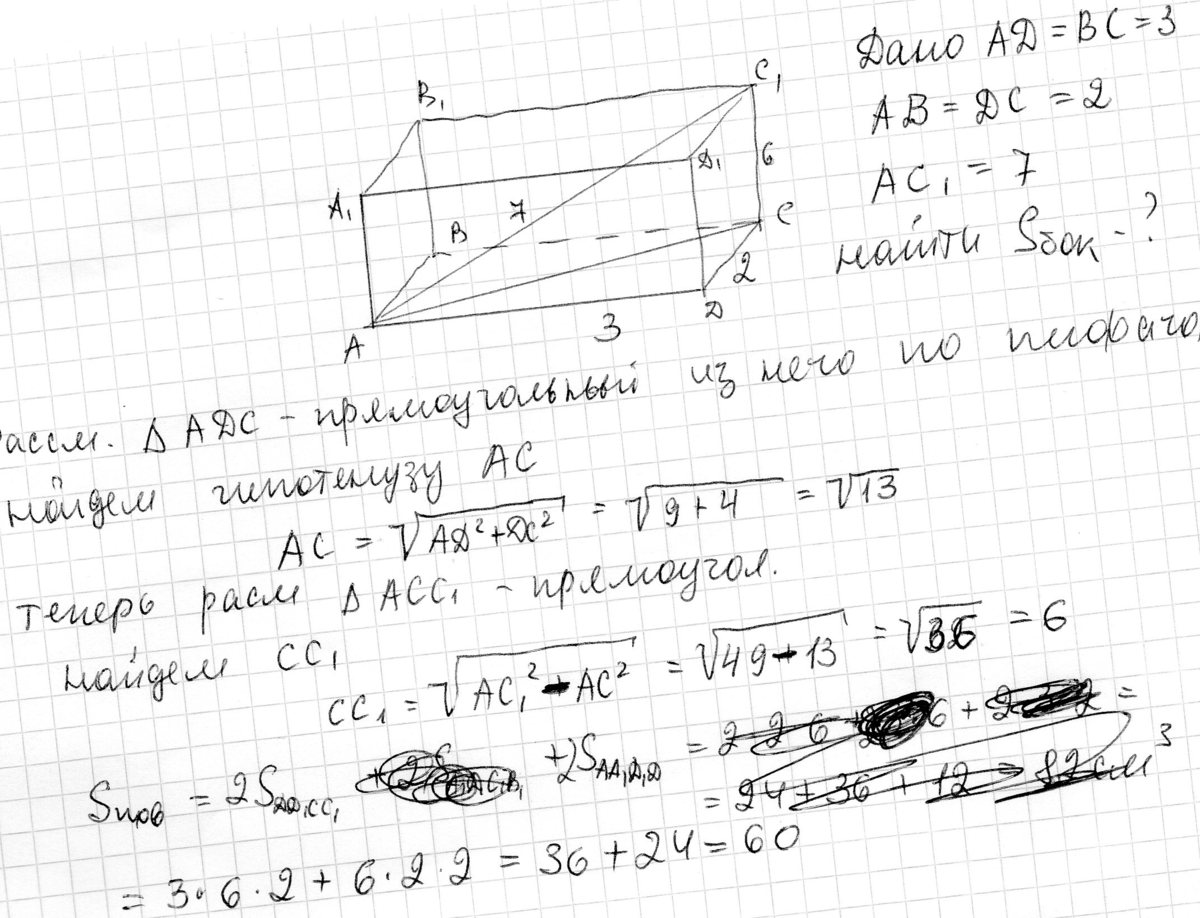 Дано AD = BC = 3
AB = DC = 2
AC₁ = 7
найти Sбок - ?
B₁
C₁
A₁
D₁
6
7
B
C
2
A
3
D
Рассм. Δ ADC - прямоугольный из него по пифаго
найдем гипотенузу AC
AC = √AD² + DC² = √9 + 4 = √13
теперь расм Δ ACC₁ - прямоугол.
найдем CC₁
CC₁ = √AC₁² - AC² = √49 - 13 = √36 = 6
Sпов = 2S_DD₁CC₁ + 2S_AA₁D₁D =
= 24 + 36 + 12 = 82 см³
= 3 · 6 · 2 + 6 · 2 · 2 = 36 + 24 = 60